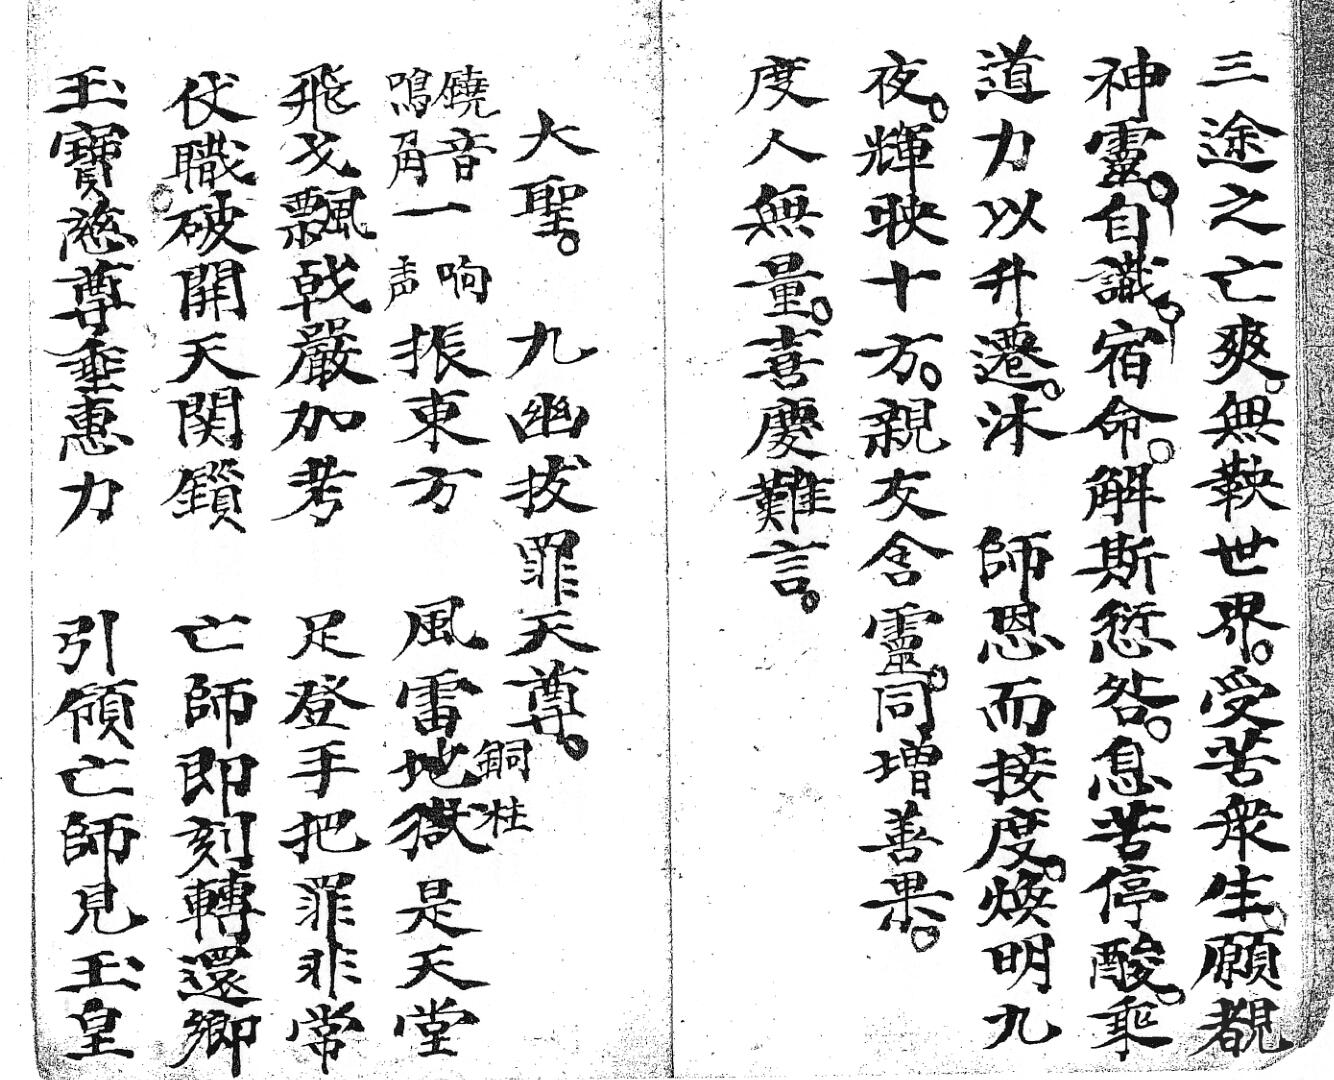 三途之亡爽。無鞅世界。受苦衆生。願覩
神靈。自識宿命。解斯愆咎。息苦停酸。乘
道力以升遷。沐　師恩而接度。煥明九
夜。輝映十方。親友含靈。同增善果。
度人無量。喜慶難言。
大聖。九幽拔罪天尊。
鐃音一响
鳴角一声
振東方　風雷地獄是天堂
銅柱
飛戈飄戟嚴加考　足登手把罪非常
伏職破開天関鎖　亡師即刻轉還鄉
玉寶慈尊垂惠力　引領亡師見玉皇